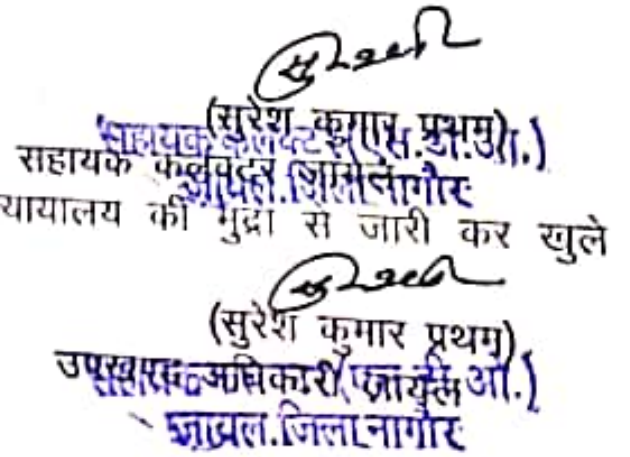 (सुरेश कुमार प्रथम)
सहायक कलक्टर (एस.डी.ओ.)
सहायक कलक्टर जायल
जायल.जिला नागौर
यायालय की मुद्रा से जारी कर खुले
(सुरेश कुमार प्रथम)
उपखण्ड अधिकारी, जायल
जायल.जिला नागौर